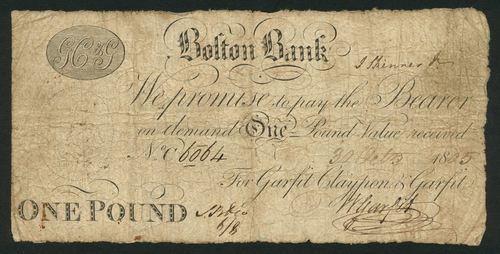 GC&G
Bolton Bank
J Skinner
We promise to pay the Bearer
on demand One Pound Value received
No. C6064 1805
For Garfit Claypon & Garfit
ONE POUND
W Garfit
6/8